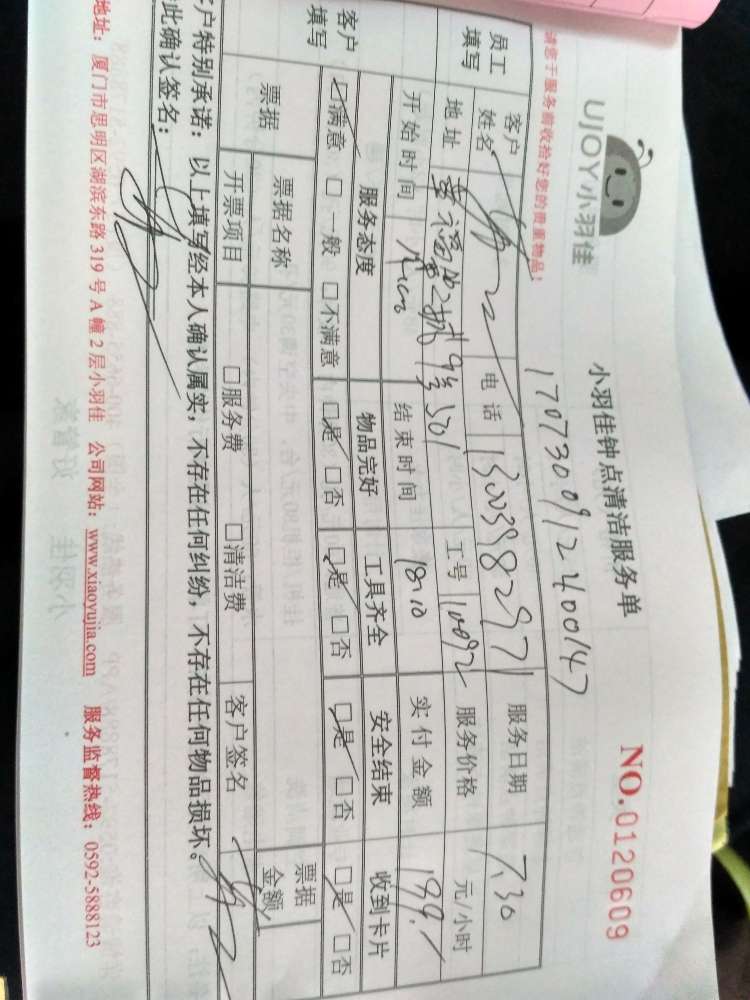 UJOY小羽佳
小羽佳钟点清洁服务单
NO.0120609
请您于服务前收拾好您的贵重物品！
1707300912400147
员工填写 客户姓名 电话 13003982971 服务日期 7.30
地址 9号501 工号 10092 服务价格 元/小时
开始时间 结束时间 18:10 实付金额
客户填写 服务态度 物品完好 工具齐全 安全结束 收到卡片
□满意 □一般 □不满意 □是 □否 □是 □否 □是 □否 □是 □否
票据 票据名称 客户签名 票据金额
开票项目 □服务费 □清洁费
客户特别承诺：以上填写经本人确认属实，不存在任何纠纷，不存在任何物品损坏。
此确认签名：
地址：厦门市思明区湖滨东路319号A幢2层小羽佳 公司网站：www.xiaoyujia.com 服务监督热线：0592-5888123